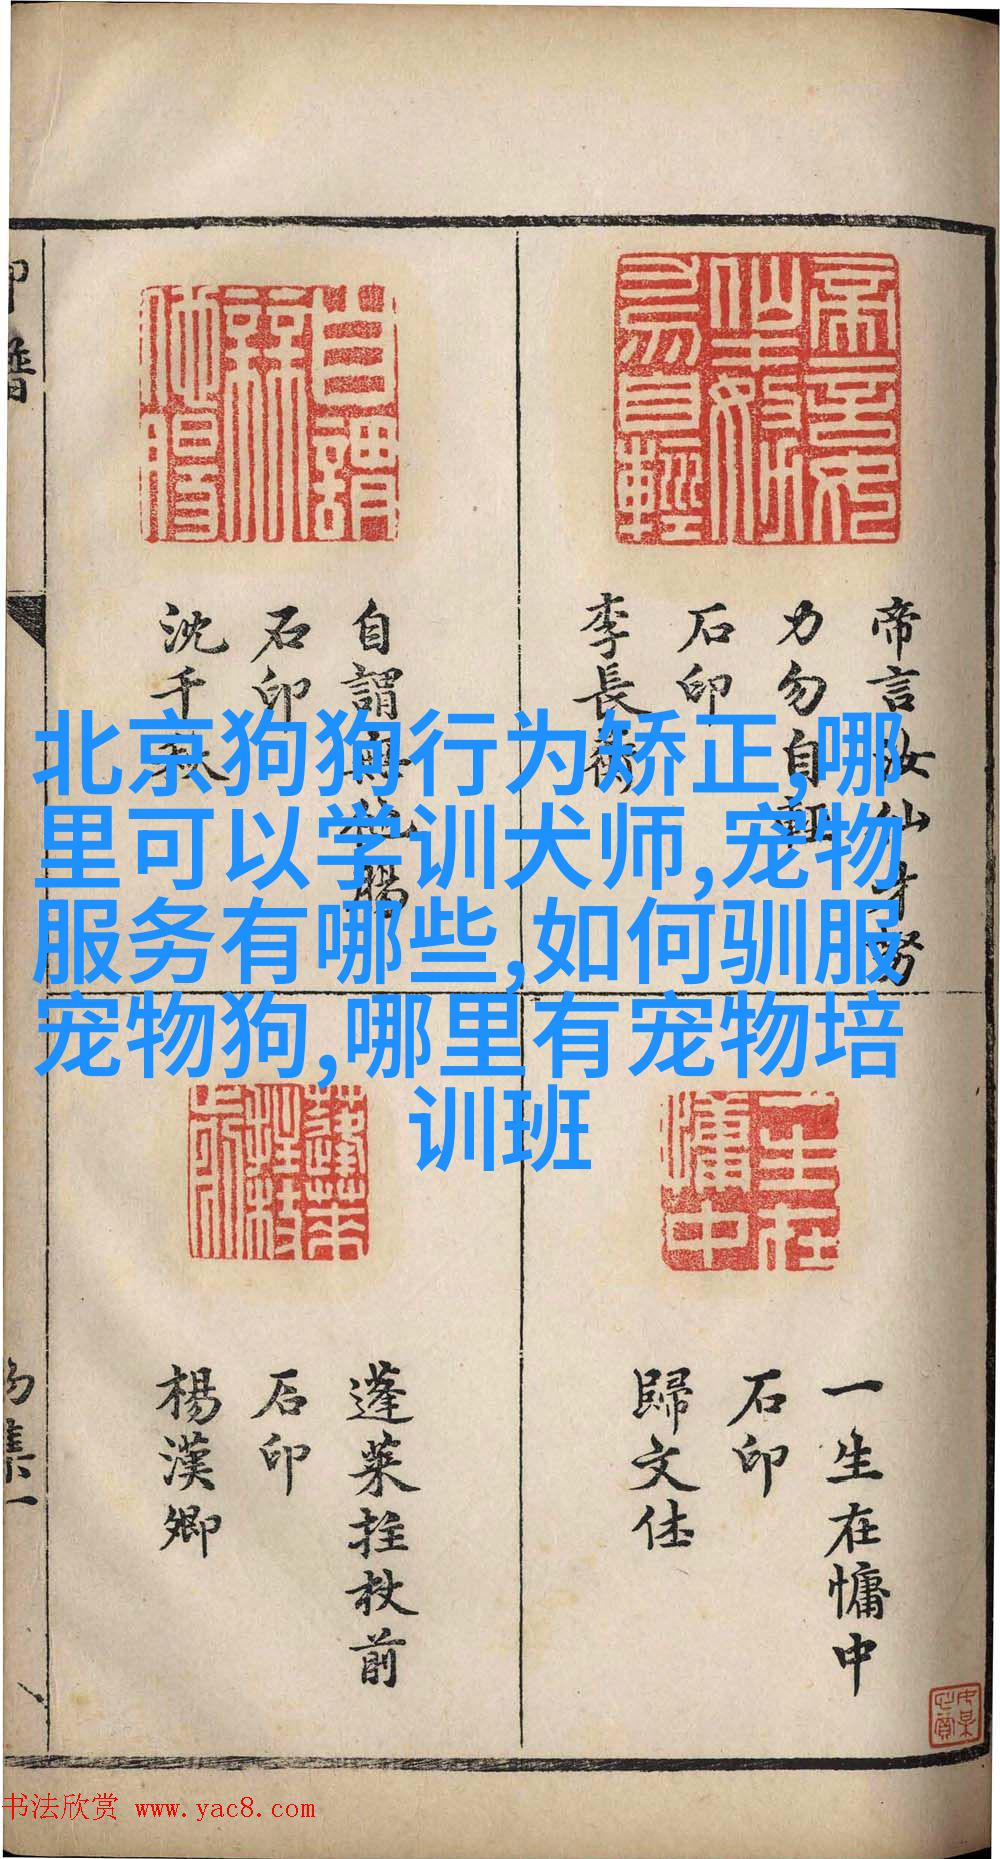 帝言汝仙才努
力勿自輕
石印
李長蘅
自謂無他腸
石印
沈千秋
北京狗狗行为矫正,哪
里可以学训犬师,宠物
服务有哪些,如何驯服
宠物狗,哪里有宠物培
训班
一生在慵中
石印
歸文休
蓬萊拄杖前
石印
楊漢卿
书法欣赏 www.yac8.com